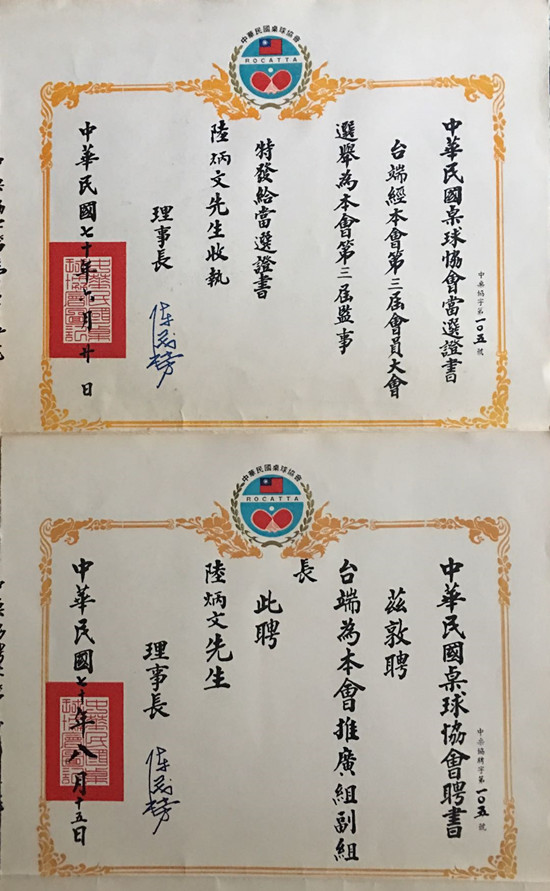 中華民國桌球協會
ROCATTA
中華民國桌球協會當選證書
中桌協字第一〇五號
台端經本會第三屆會員大會
選舉為本會第三屆監事
特發給當選證書
陸炳文先生收執
理事長
中華民國七十年六月廿日
中華民國桌球協會
ROCATTA
中華民國桌球協會聘書
中桌協聘字第一〇五號
茲敦聘
台端為本會推廣組副組
長
此聘
陸炳文先生
理事長
中華民國七十年八月十五日